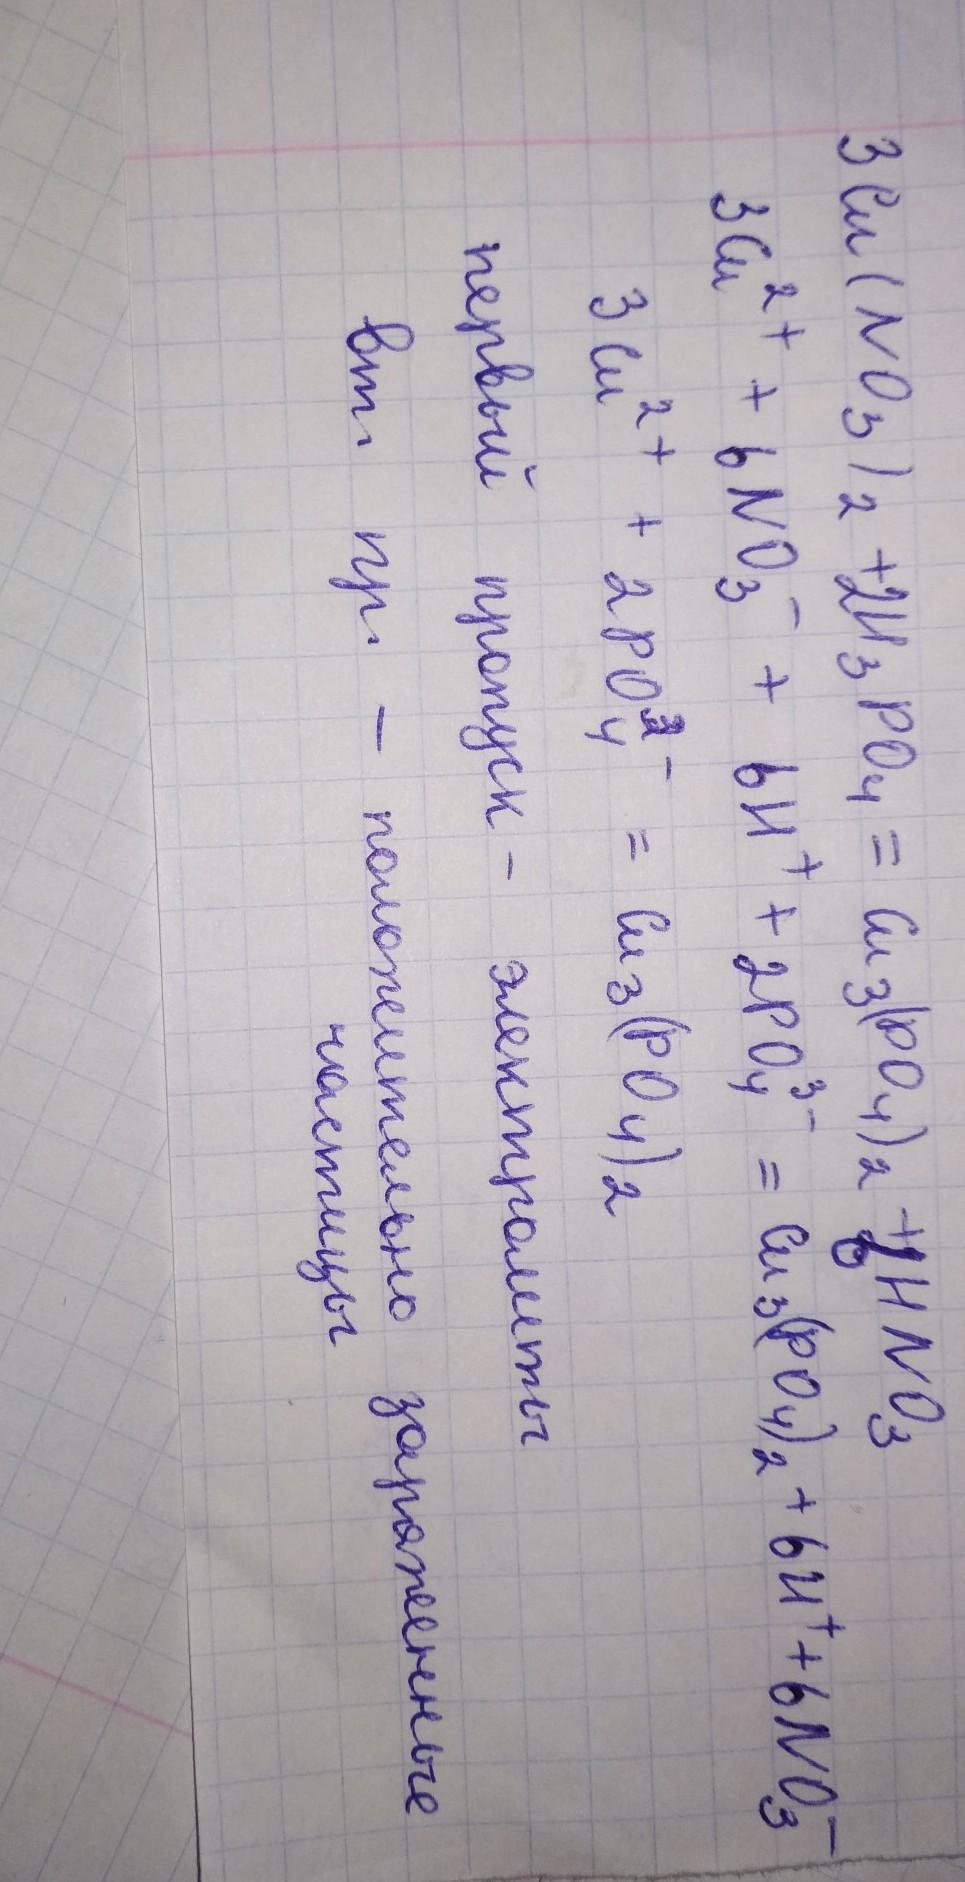 3Cu(NO3)2 + 2H3PO4 = Cu3(PO4)2 + 6HNO3
3Cu²⁺ + 6NO3⁻ + 6H⁺ + 2PO4³⁻ = Cu3(PO4)2 + 6H⁺ + 6NO3⁻
3Cu²⁺ + 2PO4³⁻ = Cu3(PO4)2
первый пропуск - электролиты
вт. пр. - положительно заряженные
частицы